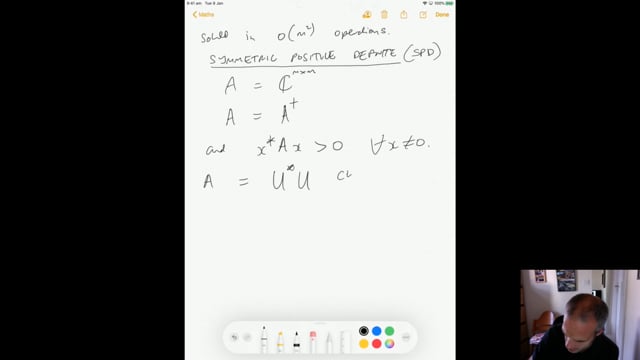 9:41 am Tue 9 Jan
100%
Maths
Done
Solved in O(m²) operations.
SYMMETRIC POSITIVE DEFINITE (SPD)
A = ℂᵐˣᵐ
A = A†
and x*Ax > 0 ∀x≠0.
A = U*U Ch